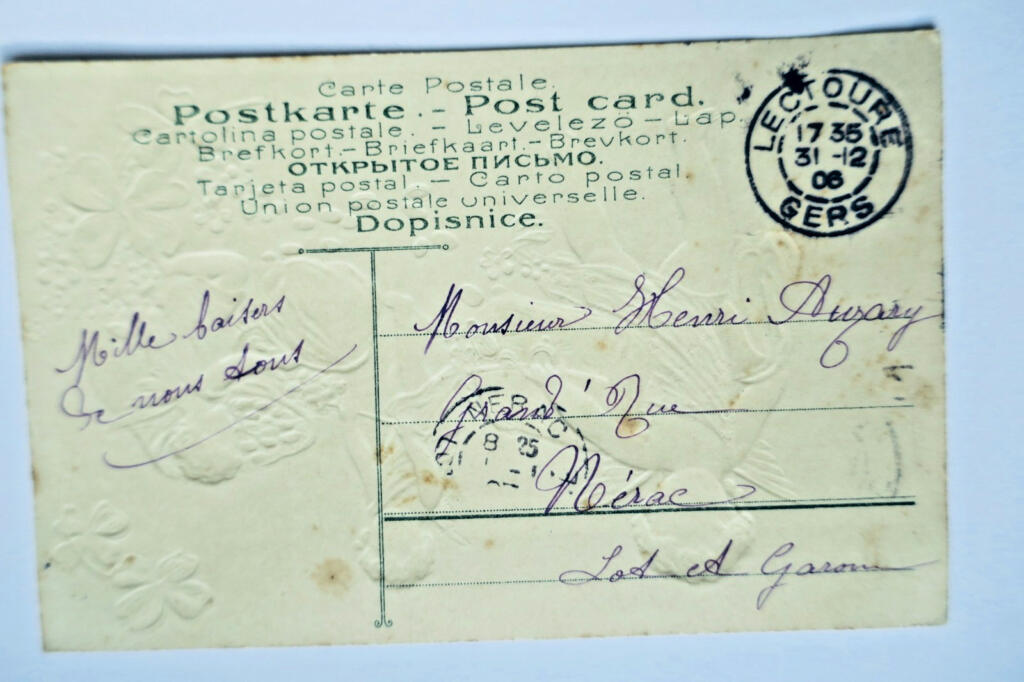 Carte Postale.
Postkarte. - Post card.
Cartolina postale. - Levelezö - Lap.
Brefkort. - Briefkaart. - Brevkort.
ОТКРЫТОЕ ПИСЬМО.
Tarjeta postal. - Carto postal
Union postale universelle.
Dopisnice.
LECTOURE
17 35
31 -12
06
GERS
Mille baisers
de nous tous
Monsieur Henri Auzary
Grand' Rue
NERAC
8 25
Nérac
Lot et Garonne